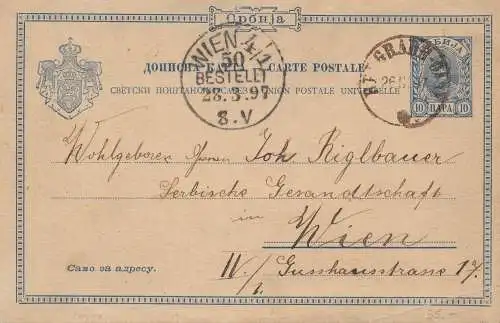 Србија
WIEN 4/1
50
BESTELLT
28.3.97
8.V
ДОПИСНА КАРТА CARTE POSTALE
СВЕТСКИ ПОШТАНСКИ САВЕЗ UNION POSTALE UNIVERSELLE
СРБИЈА
10 ПАРА 10
BELGRADE
26
Wohlgeboren Herrn Joh Riglbauer
Serbische Gesandtschaft
in
Wien
Само за адресу.
IV/1. Gusshausstrasse 17.
35.-